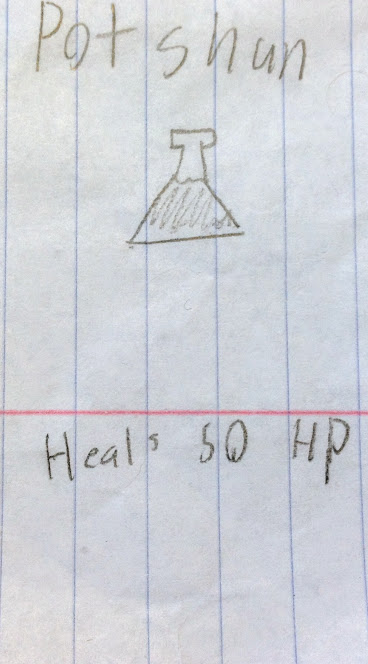 Potshun
Heals 50 HP